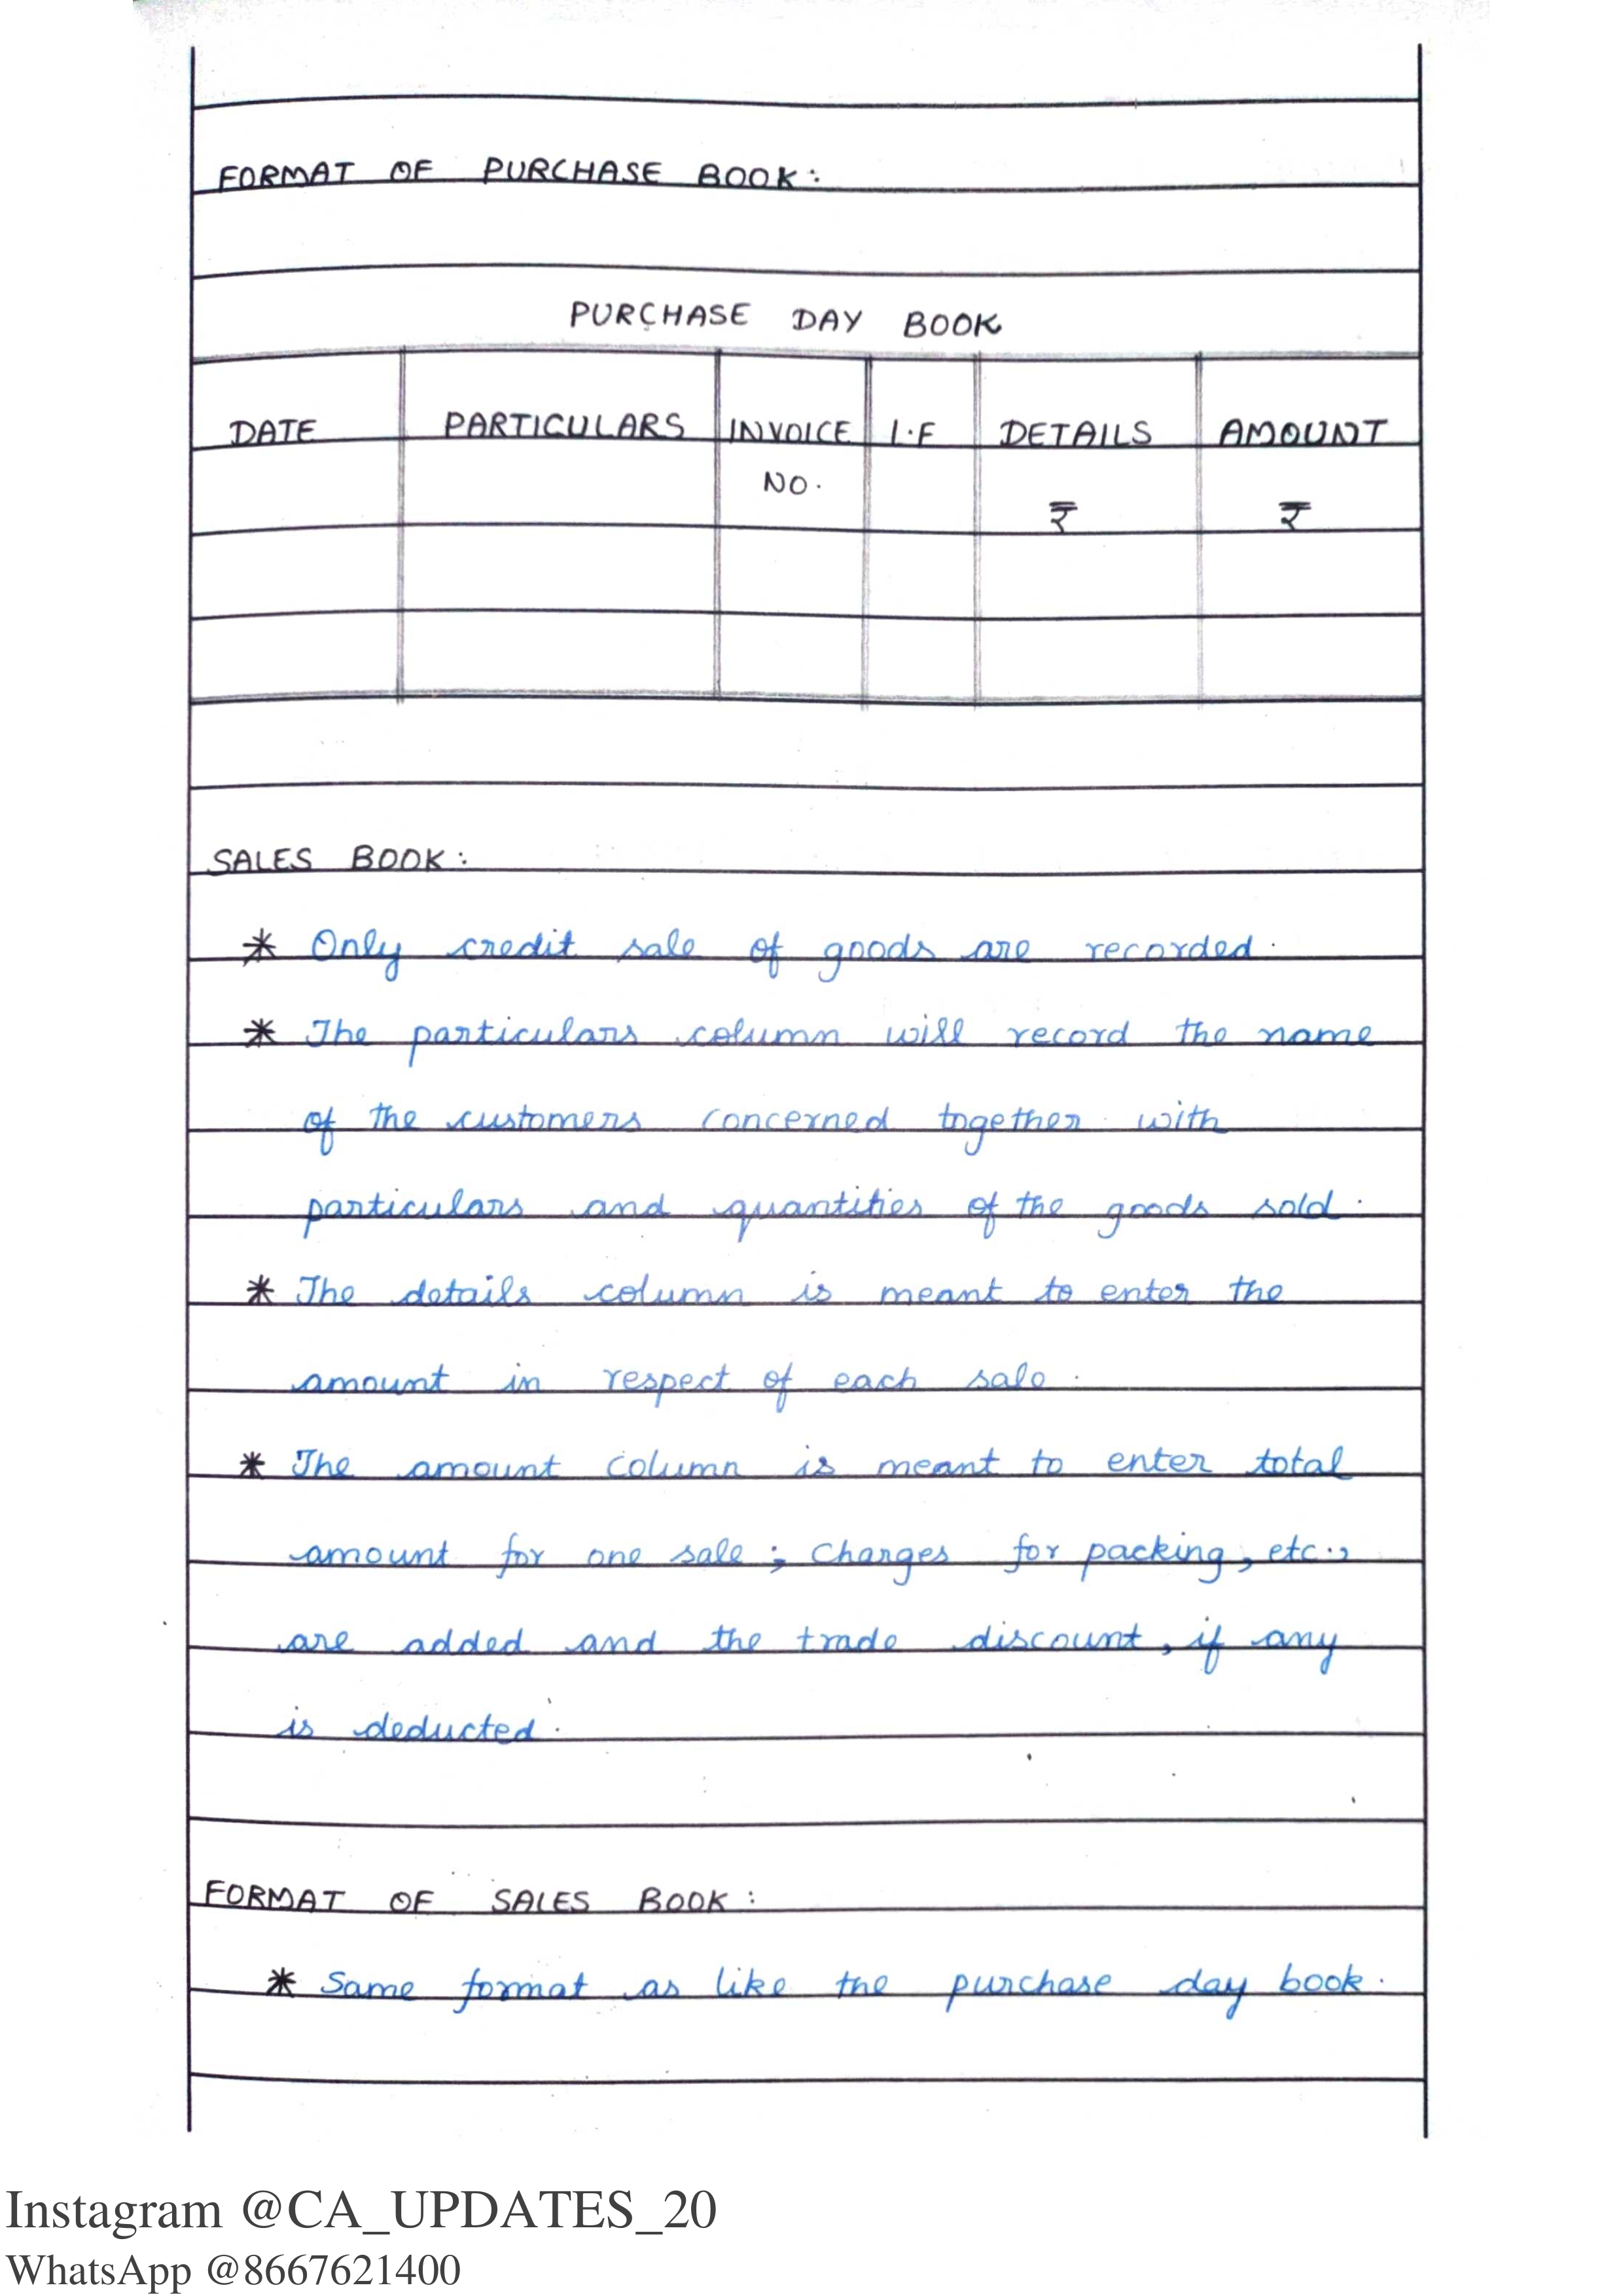 FORMAT OF PURCHASE BOOK:
PURCHASE DAY BOOK
DATE PARTICULARS INVOICE L.F DETAILS AMOUNT
NO.
₹ ₹
SALES BOOK:
* Only credit sale of goods are recorded.
* The particulars column will record the name
of the customers concerned together with
particulars and quantities of the goods sold.
* The details column is meant to enter the
amount in respect of each sale.
* The amount column is meant to enter total
amount for one sale; charges for packing, etc.,
are added and the trade discount, if any
is deducted.
FORMAT OF SALES BOOK:
* Same format as like the purchase day book.
Instagram @CA_UPDATES_20
WhatsApp @8667621400